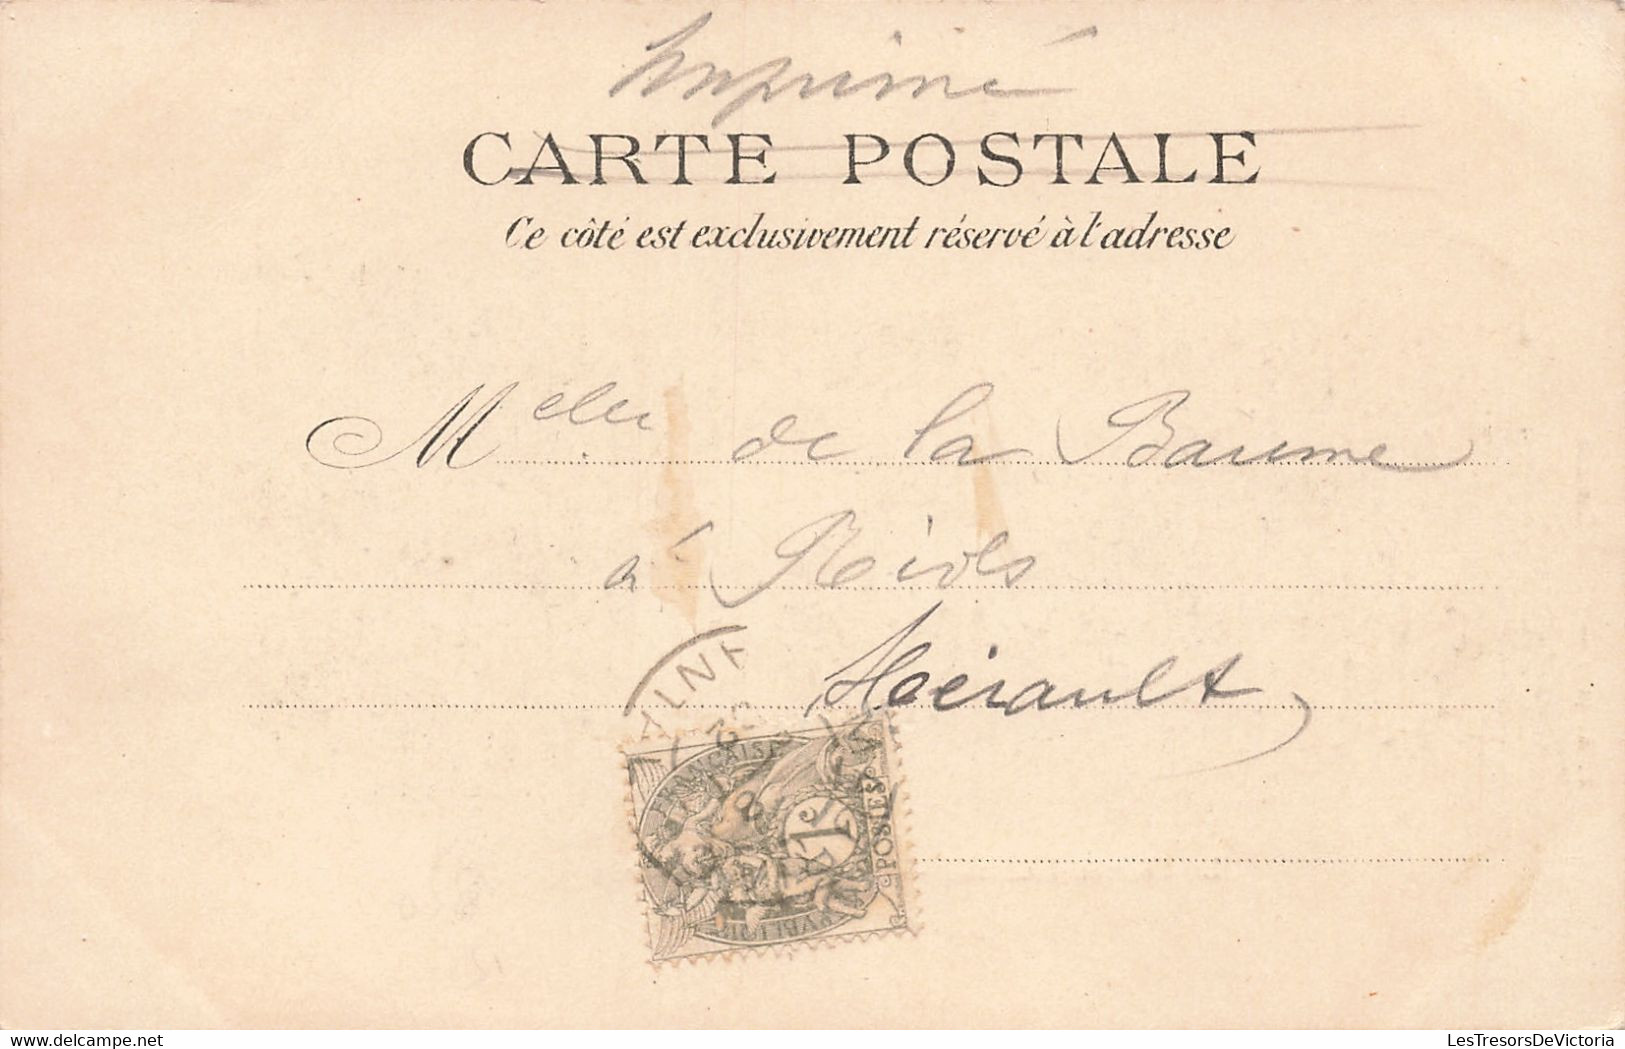 Imprimé
CARTE POSTALE
Ce côté est exclusivement réservé à l'adresse
M elle de la Baume
à Riols
Hérault
RÉPUBLIQUE FRANÇAISE
1c
POSTES
delcampe.net
LesTresorsDeVictoria